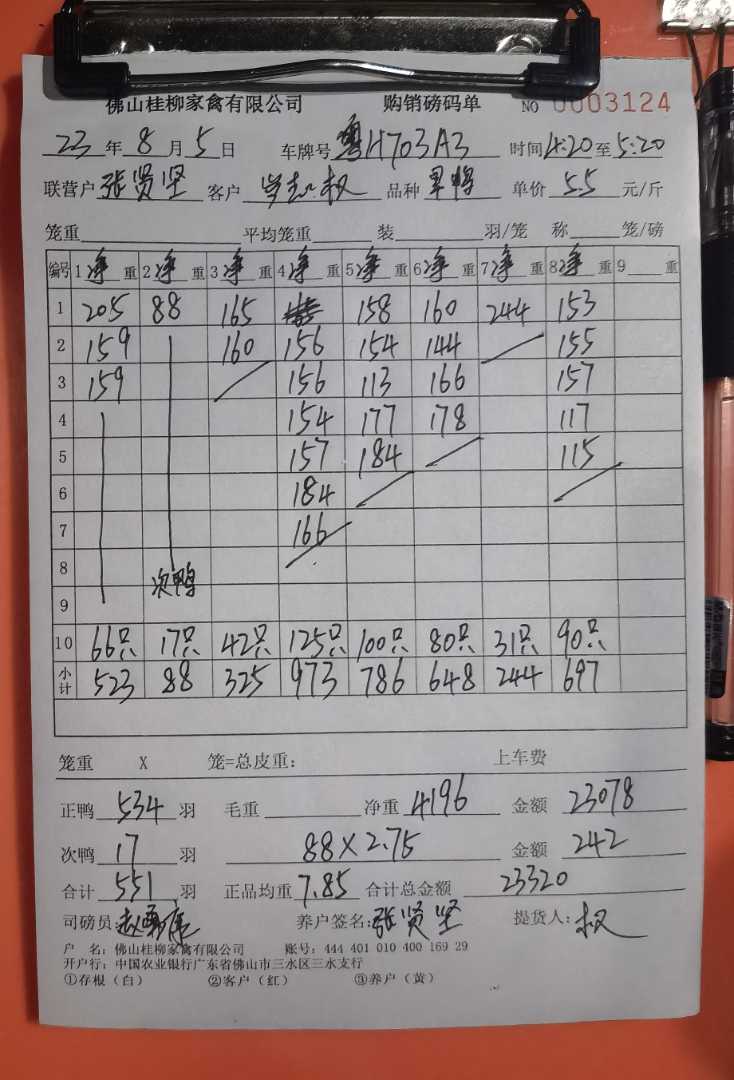 佛山桂柳家禽有限公司 购销磅码单 NO 0003124
23 年 8 月 5 日 车牌号 粤H703A3 时间 4:20 至 5:20
联营户 张贤坚 客户 权 品种 单价 5.5 元/斤
笼重 平均笼重 装 羽/笼 称 笼/磅
编号 1 净 重 2 净 重 3 净 重 4 净 重 5 净 重 6 净 重 7 净 重 8 净 重 9 重
1 205 88 165 158 160 244 153
2 159 160 156 154 144 155
3 159 156 113 166 157
4 154 177 178 117
5 157 184 115
6 184
7 166
8 次鸭
9
10 66只 17只 42只 125只 100只 80只 31只 90只
小计 523 88 325 973 786 648 244 697
笼重 X 笼=总皮重: 上车费
正鸭 534 羽 毛重 净重 4196 金额 23078
次鸭 17 羽 88×2.75 金额 242
合计 551 羽 正品均重 7.85 合计总金额 23320
司磅员: 养户签名: 张贤坚 提货人: 权
户 名: 佛山桂柳家禽有限公司 账号: 444 401 010 400 169 29
开户行: 中国农业银行广东省佛山市三水区三水支行
①存根（白） ②客户（红） ③养户（黄）